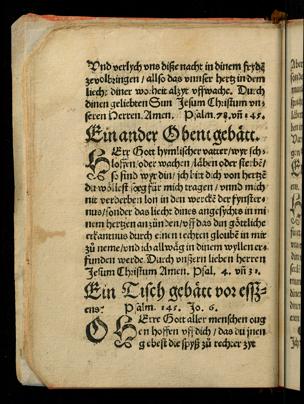 Vnd verlych vns diße nacht in dinem frydē
ze volbringen / allso das vnnser hertz in dem
liecht diner worheit alzyt vffwache. Durch
dinen geliebten Sun Jesum Christum vn=
seren Herren. Amen. Psalm. 78. vñ 145.
Ein ander Obent gebätt.
HErr Gott hymlischer vatter / wyr sch=
loffen / oder wachen / läben oder sterbē /
so sind wyr din / ich bitt dich von hertzē
du wöllest sorg für mich tragen / vnnd mich
nit verderben lon in den werckē der fynster=
nus / sonder das liecht dines angesychts in mi
nem hertzen anzünden / vff das din göttliche
erkantnus durch einen rechten gloubē in mir
zů neme / vnd ich allwäg in dinem wyllen er=
funden werde. Durch vnßern lieben herren
Jesum Christum Amen. Psal. 4. vñ 31.
Ein Tisch gebätt vor essz=
ens. Psalm. 145. Jo. 6.
O HErre Gott aller menschen oug
en hoffen vff dich / das du jnen
g ebest die spyß zů rechter zyt